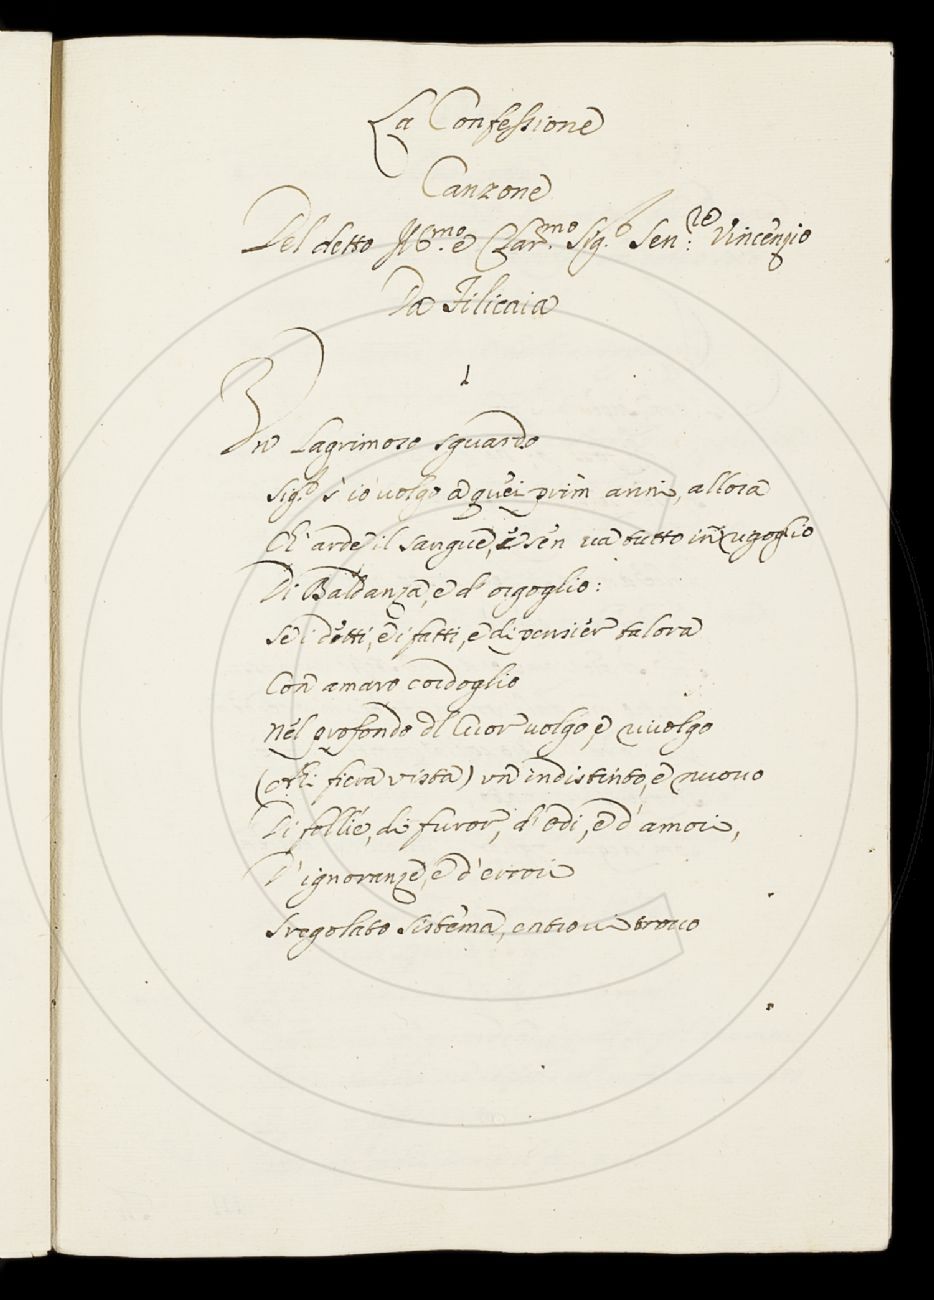 La Confessione
Canzone
Del detto Ill:mo e Clar:mo Sig.e Sen:re Vincenzio
Da Filicaia
1
Un Lagrimoso sguardo
Sig.e s' io uolgo a quei prim anni, allora
Ch' arde il sangue, e sen ua tutto in rugoglio
Di Baldanza, e d' orgoglio:
Se i detti, e i fatti, e di pensier talora
Con amaro cordoglio
Nel profondo dl Cuor uolgo, e riuolgo
(ohi fiera vista) un indistinto, e nuouo
Di follie, di furor, d' odi, e d' amori,
D' ignoranze, e d' errori
Sregolato Sistema, entro ui trouo